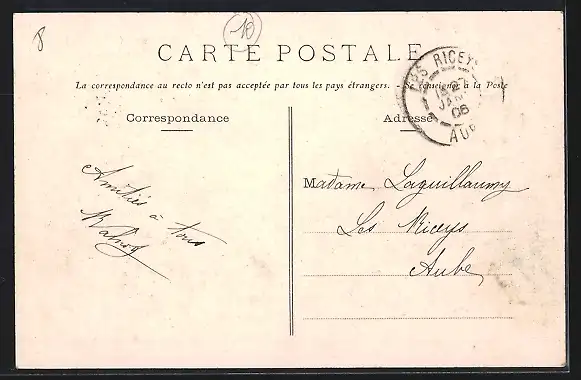 8
10
CARTE POSTALE
La correspondance au recto n'est pas acceptée par tous les pays étrangers. - Se renseigner à la Poste
LES RICEYS
JANV
06
AUBE
Correspondance
Adresse
Amitiés à tous
Madame Laguillaumy
Les Riceys
Aube